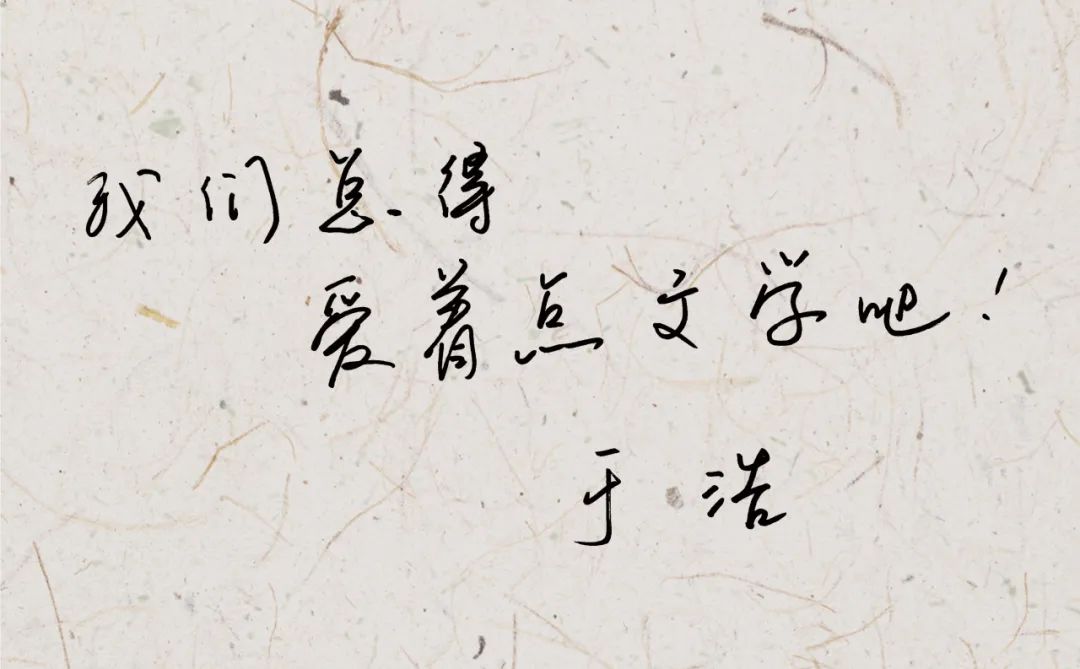 我们总得
爱着点文学吧!
于浩